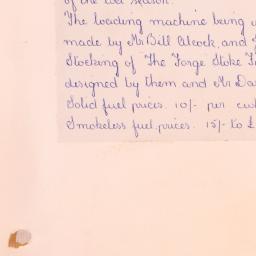 of the last season.
The loading machine being
made by Mr Bill Alcock, and
Stocking of The Forge Stoke
designed by them and Mr Da
Solid fuel prices. 10/- per cw
Smokeless fuel, prices. 15/- to £